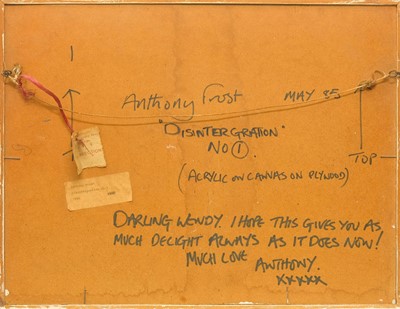 Anthony Frost MAY 85
"DISINTERGRATION"
NO 1.
TOP
(ACRYLIC ON CANVAS ON PLYWOOD)
DARLING WENDY. I HOPE THIS GIVES YOU AS
MUCH DELIGHT ALWAYS AS IT DOES NOW!
MUCH LOVE
ANTHONY.
xxxxx